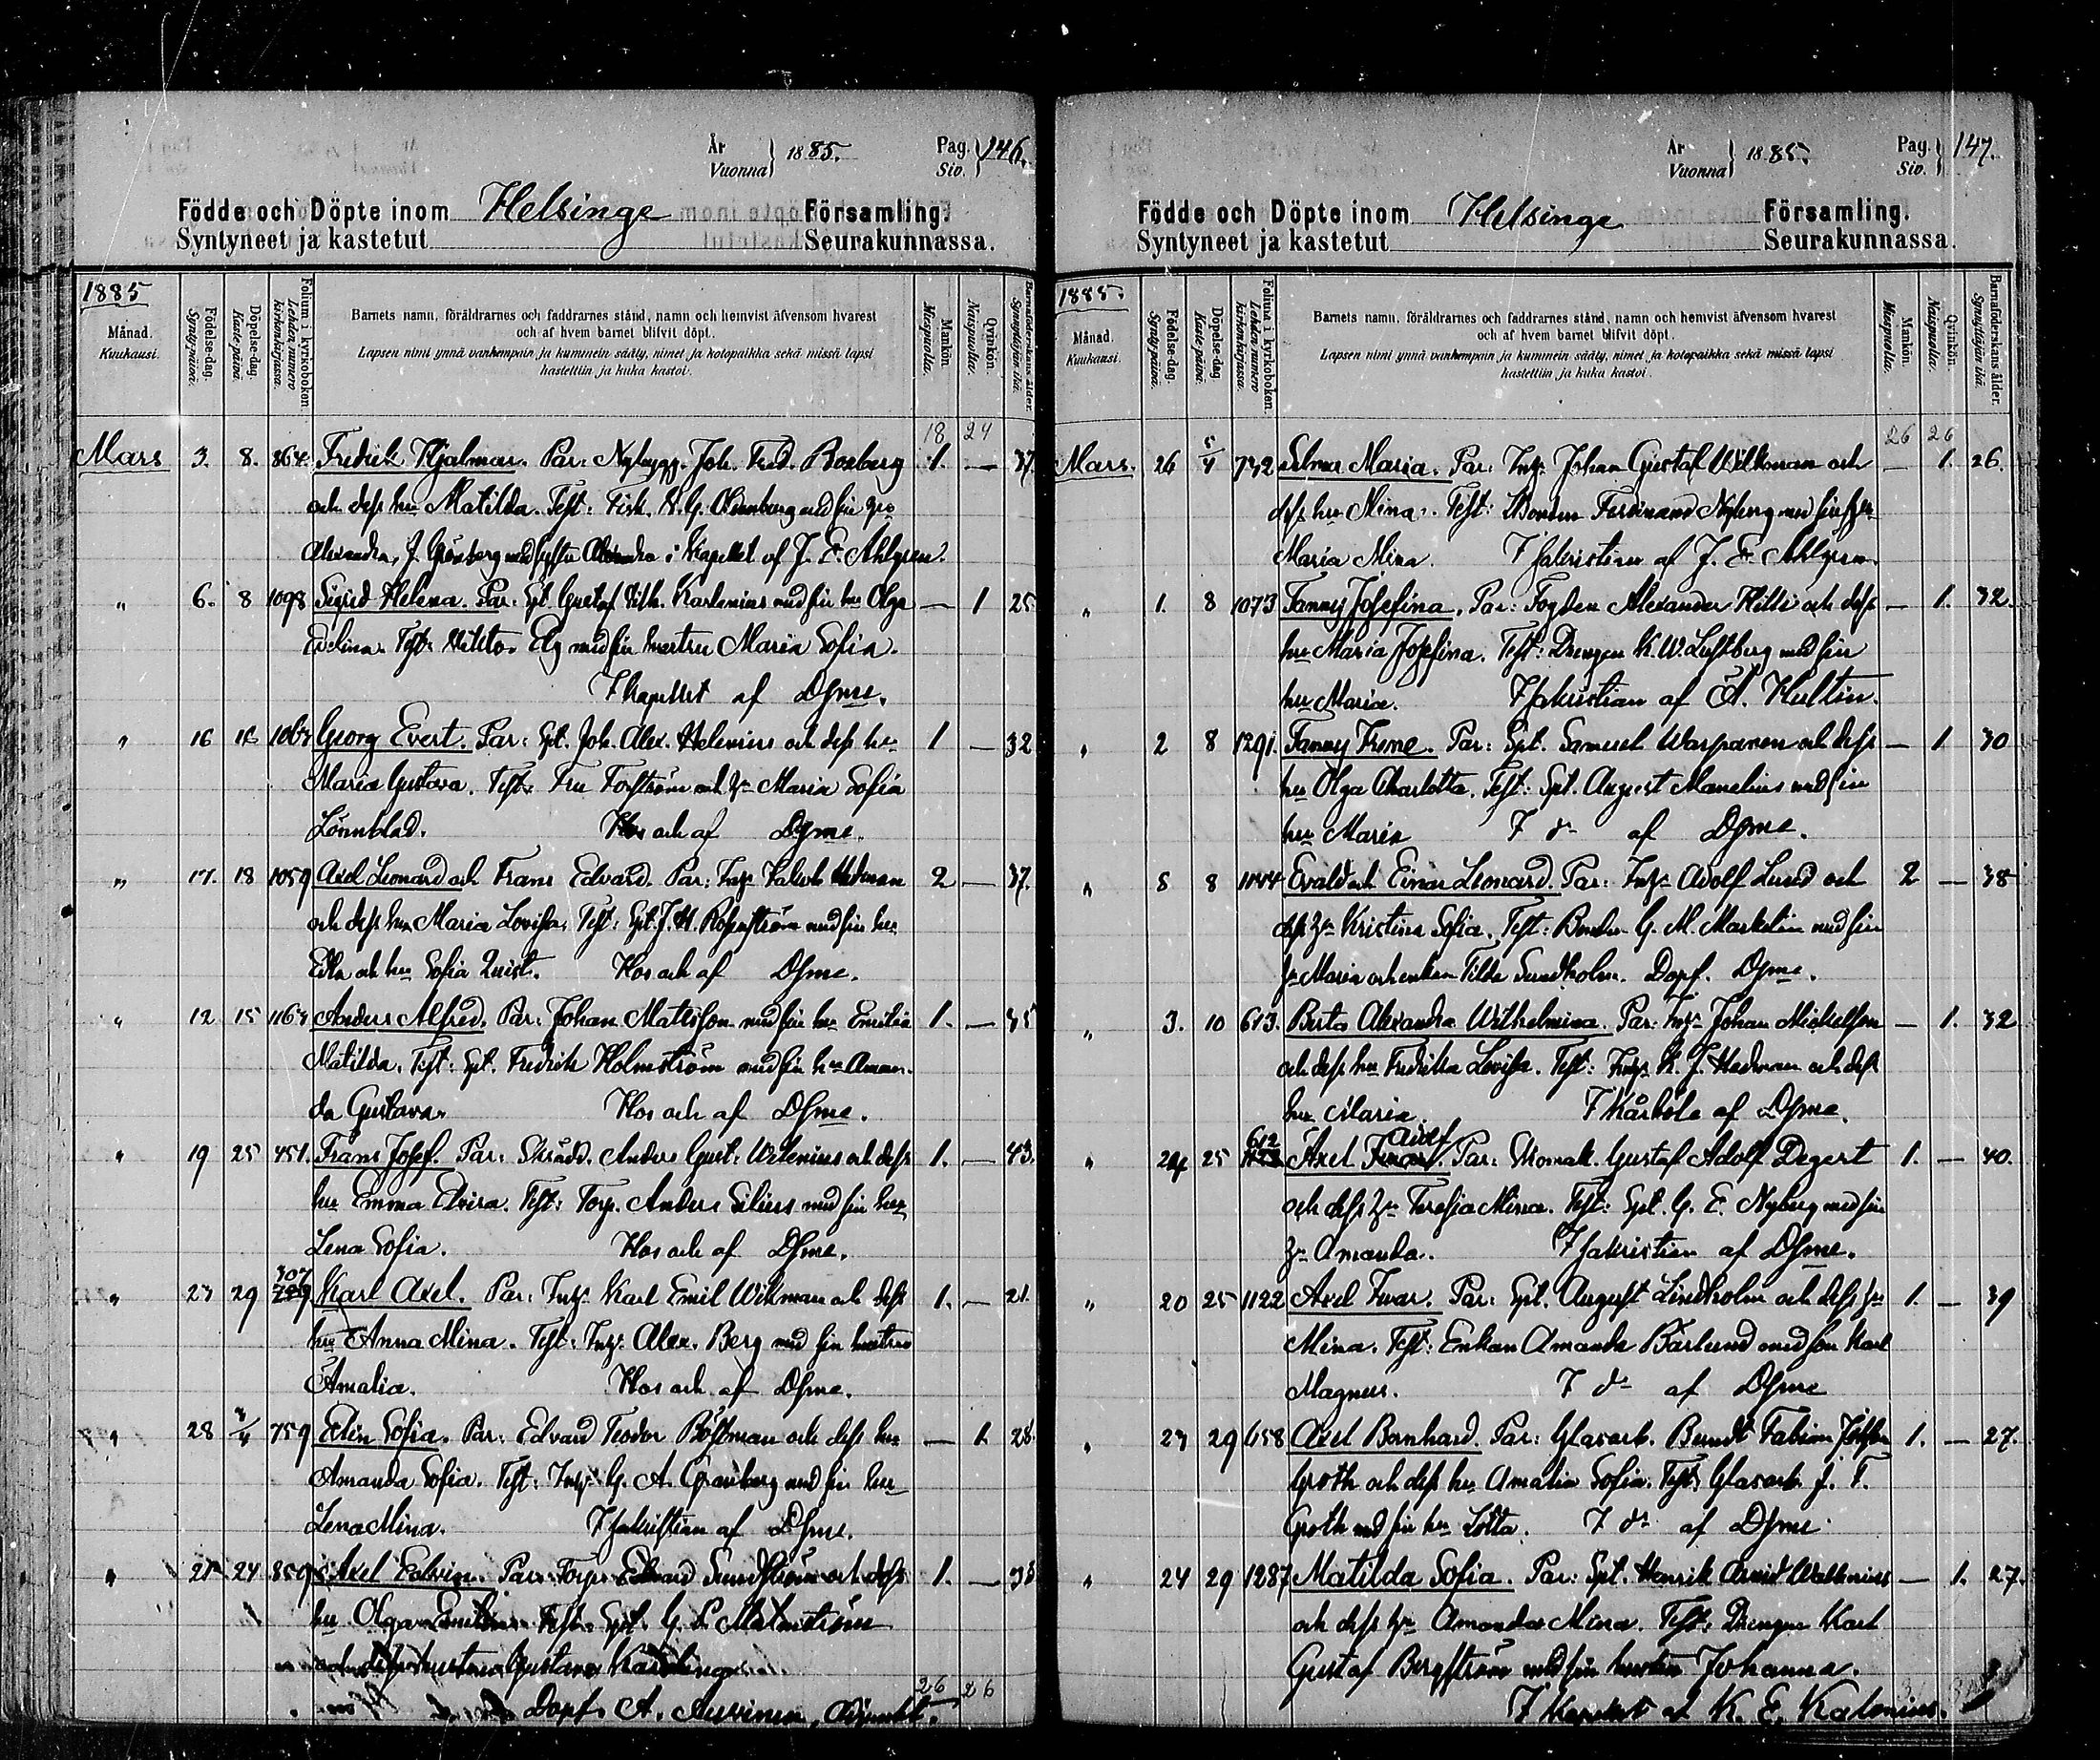 År 1885. Pag. 146.
Vuonna Siv.
Födde och Döpte inom Helsinge Församling.
Syntyneet ja kastetut Seurakunnassa.
1885
Månad. Kuukausi.
Födelse-dag. Synty-päivä.
Döpelse-dag. Kaste-päivä.
Folium i kyrkoboken. Lehden numero kirkonkirjassa.
Barnets namn, föräldrarnes och faddrarnes stånd, namn och hemvist äfvensom hvarest
och af hvem barnet blifvit döpt.
Lapsen nimi ynnä vanhempain ja kummein sääty, nimet ja kotopaikka sekä missä lapsi
kastettiin ja kuka kastoi.
Mankön. Miespuolia.
Qvinkön. Naispuolia.
Barnaföderskans ålder. Synnyttäjän ikä.
18 24
Mars 3. 8. 864. Fredrik Hjalmar. Par: Nybygg. Joh. Fred. Boxberg 1. — 37.
och dess hu Matilda. Test: Fisk. med sin
Alexandra, J. Grönberg med i Kapellet af J. E. Ahlgren.
" 6. 8 1098 Sigrid Helena. Par: Spt. Gustaf Vilh. Karlenius med sin hu Olga — 1 25
Evelina. Test: Elg med sin hustru Maria Sofia.
I kapellet af Dsme.
" 16 16 Georg Evert. Par: Spt. Joh. Alex. Helenius och dess hu 1 — 32
Maria Gustava. Test: Fru Forsström och Maria Sofia
Lönnblad. Hos och af Dsme.
" 17. 18 1059 Axel Leonard och Frans Edvard. Par: Inhs. Jakob 2 — 37.
och dess hu Maria Lovisa. Test: Spt. J. H. Rosenström med sin hu
Edla och hu Sofia Quist. Hos och af Dsme.
" 12 15 Anders Alfred. Par: Johan Matsson med sin hu Emilia 1. — 35
Matilda. Test: Spt. Fredrik Holmström med sin hu Aman-
da Gustava. Hos och af Dsme.
" 19 25 451. Frans Josef. Par: Skrädd. Anders Gust. Welenius och dess 1. — 43.
hu Emma Elvira. Test: Torp. Anders Silius med sin hu
Lena Sofia. Hos och af Dsme.
307
" 23 29 Karl Axel. Par: Inhs. Karl Emil Wikman och dess 1. — 21.
hu Anna Mina. Test: Inhs. Alex. Berg med sin hustru
Amalia. Hos och af Dsme.
" 28 3/4 759 Elin Sofia. Par: Edvard Teodor Böstman och dess hu — 1. 28.
Amanda Sofia. Test: Inhs. G. A. Granberg med sin hu
Lena Mina. I sakristian af Dsme.
" 21 24 859 Axel Edvin. Par: Torp. Edvard Sundström och dess 1. —
hu Olga Emilia. Test: Spt. G. Malmström
och dess hustru Gustava Karolina.
26 26
Döpt. A.
År 1885. Pag. 147.
Vuonna Siv.
Födde och Döpte inom Helsinge Församling.
Syntyneet ja kastetut Seurakunnassa.
1885.
Månad. Kuukausi.
Födelse-dag. Synty-päivä.
Döpelse-dag. Kaste-päivä.
Folium i kyrkoboken. Lehden numero kirkonkirjassa.
Barnets namn, föräldrarnes och faddrarnes stånd, namn och hemvist äfvensom hvarest
och af hvem barnet blifvit döpt.
Lapsen nimi ynnä vanhempain ja kummein sääty, nimet ja kotopaikka sekä missä lapsi
kastettiin ja kuka kastoi.
Mankön. Miespuolia.
Qvinkön. Naispuolia.
Barnaföderskans ålder. Synnyttäjän ikä.
26 26
Mars. 26 5/4 742 Selma Maria. Par: Inhs. Johan Gustaf Wikman och — 1. 26.
dess hu Mina. Test: Bonden Ferdinand Nyberg med sin
Maria Mina. I sakristian af J. E. Ahlgren.
" 1. 8 1073 Fanny Josefina. Par: Fogden Alexander Hille och dess — 1. 32.
hu Maria Josefina. Test: Drengen K. W. Luftberg med sin
hu Maria. I sakristian af A. Hultin.
" 2 8 1291. Fanny Irene. Par: Spt. Samuel Warpanen och dess — 1. 30
hu Olga Charlotta. Test: Spt. August Manelius med sin
hu Maria I do af Dsme.
" 5 8 1144 Evald och Einar Leonard. Par: Inhs. Adolf Lund och 2 — 38
dess hu Kristina Sofia. Test: Bonden G. M. Markelin med sin
hu Maria och enkan Tilda Sundholm. Döpt. Dsme.
" 3. 10 613. Berta Alexandra Wilhelmina. Par: Inhs. Johan Mickelsson — 1. 32
och dess hu Fredrika Lovisa. Test: Inhs. K. J. Hedman och dess
hu Maria. I Kårböle af Dsme.
612 Adolf
" 24 25 Axel Par: Skomak. Gustaf Adolf Degert 1. — 40.
och dess hu Teresia Mina. Test: Spt. G. E. Nyberg med sin
hu Amanda. I sakristian af Dsme.
" 20 25 1122 Axel Ivar. Par: Spt. August Lindholm och dess hu 1. — 39
Mina. Test: Enkan Amanda Bärlund med son Karl
Magnus. I do af Dsme
" 23 29 658 Axel Bernhard. Par: Glasarb. Berndt Fabian 1. — 27.
Groth och dess hu Amalia Sofia. Test: Glasarb. J. F.
Groth med sin hu Lotta. I do af Dsme
" 24 29 1287 Matilda Sofia. Par: Spt. Henrik Arvid — 1. 27.
och dess hu Amanda Mina. Test: Drengen Karl
Gustaf Bergström med sin hustru Johanna.
I af K. E. Kalenius.